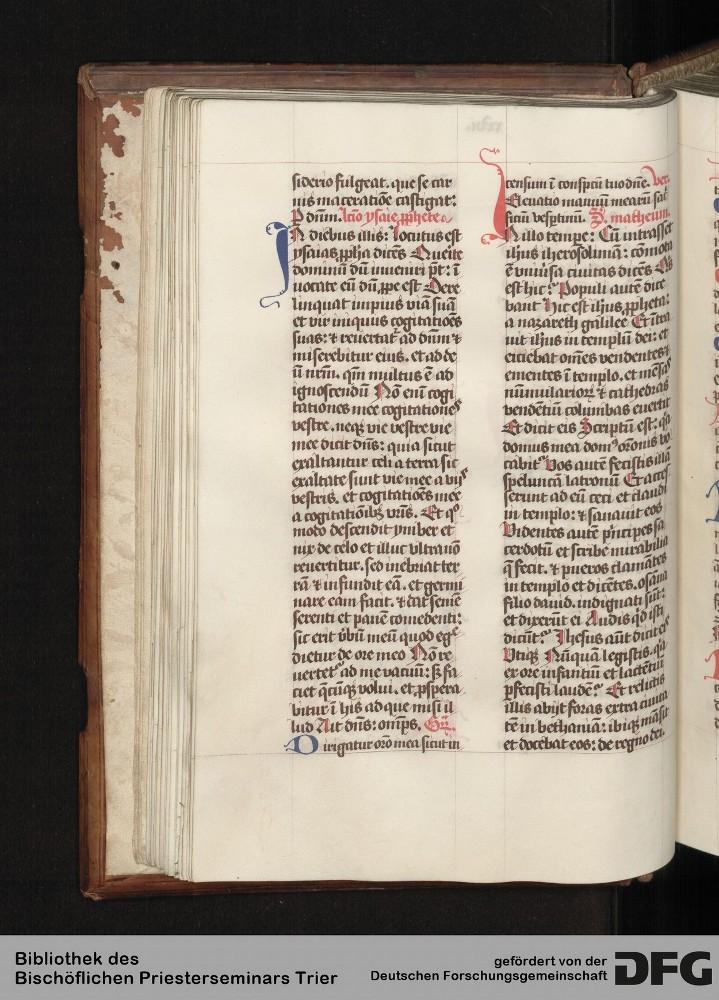 siderio fulgeat. que se car
nis maceratiõe castigat:
P dñm. lcĩo ysaie ꝓphete.
IN diebus illis: locutus est
ysaias ꝓpħa dicẽs Querite
dominũ dũ inueniri põt: ĩ
uocate eũ dũ ꝓpe est Dere
linquat impius viã suã
et vir iniquus cogitatiões
suas: ⁊ reuertat᷑ ad dñm ⁊
miserebitur eius. et ad de
ũ nrm̃. qm̃ multus ẽ ad
ignoscendũ Nõ eni cogi
tationes mee cogitationes
vestre. neqꝫ vie vestre vie
mee dicit dñs: quia sicut
exaltantur celi a terra sic
exaltate sunt vie mee a vijs
vestris. et cogitatiões mee
a cogitatiõibꝫ vr̃is. Et qͦ
moto descendit ymber et
nix de celo et illuc vltra nõ
reuertitur. sed inebriat ter
rã ⁊ infundit eã. et germi
nare eam facit. ⁊ dat semẽ
serenti et panẽ comedenti:
sic erit v̓bũ meũ quod eg̾
dietur de ore meo Nõ re
uertet᷑ ad me vacuũ: sꝫ fa
ciet q̃cũqꝫ volui. et ꝓspera
bitur ĩ hijs ad que misi il
lud Ait dñs: om̃ps. Gr̃.
Dirigatur orõ mea sicut in
censum ĩ conspcũ tuo dñe. Ver.
Eleuatio manuũ mearũ sac̾
ficiũ vesptinũ. S. matheum.
IN illo tempe: Cũ intrasset
iħus iherosolimã: cõmota
ẽ vniu̓sa ciuitas dicẽs Qs
est hic? Populi autẽ dice
bant Hic est iħus ꝓpheta:
a nazareth galilee Et ĩtra
uit iħus in templũ dei: et
eiciebat om̃es vendentes ⁊
ementes ĩ templo. et mẽsas
nũmulariorꝝ ⁊ cathedras
vendẽtiũ columbas euertit
Et dicit eis Scriptũ est: qa
domus mea domꝰ orõnis vo
cabit᷑ Vos autẽ fecistis illã
speluncã latronũ Et acces
serunt ad eũ ceci et claudi
in templo: ⁊ sanauit eos
Videntes autẽ pñcipes sa
cerdotũ et scribe mirabilia
q̃ fecit. ⁊ pueros clamãtes
in templo et dicẽtes. osãna
filio dauid. indignati sũt:
et dixerũt ei Audis qd isti
dicũt? Ihesus aũt dicit eis
Vtiqꝫ Nũquã legistis. qa
ex ore infantiũ et lactẽtiũ
pfecisti laudẽ? Et relictis
illis abijt foras extra ciuita
tẽ in bethaniã: ibiqꝫ mãsit
et docebat eos: de regno dei.
Bibliothek des
Bischöflichen Priesterseminars Trier
gefördert von der
Deutschen Forschungsgemeinschaft
DFG